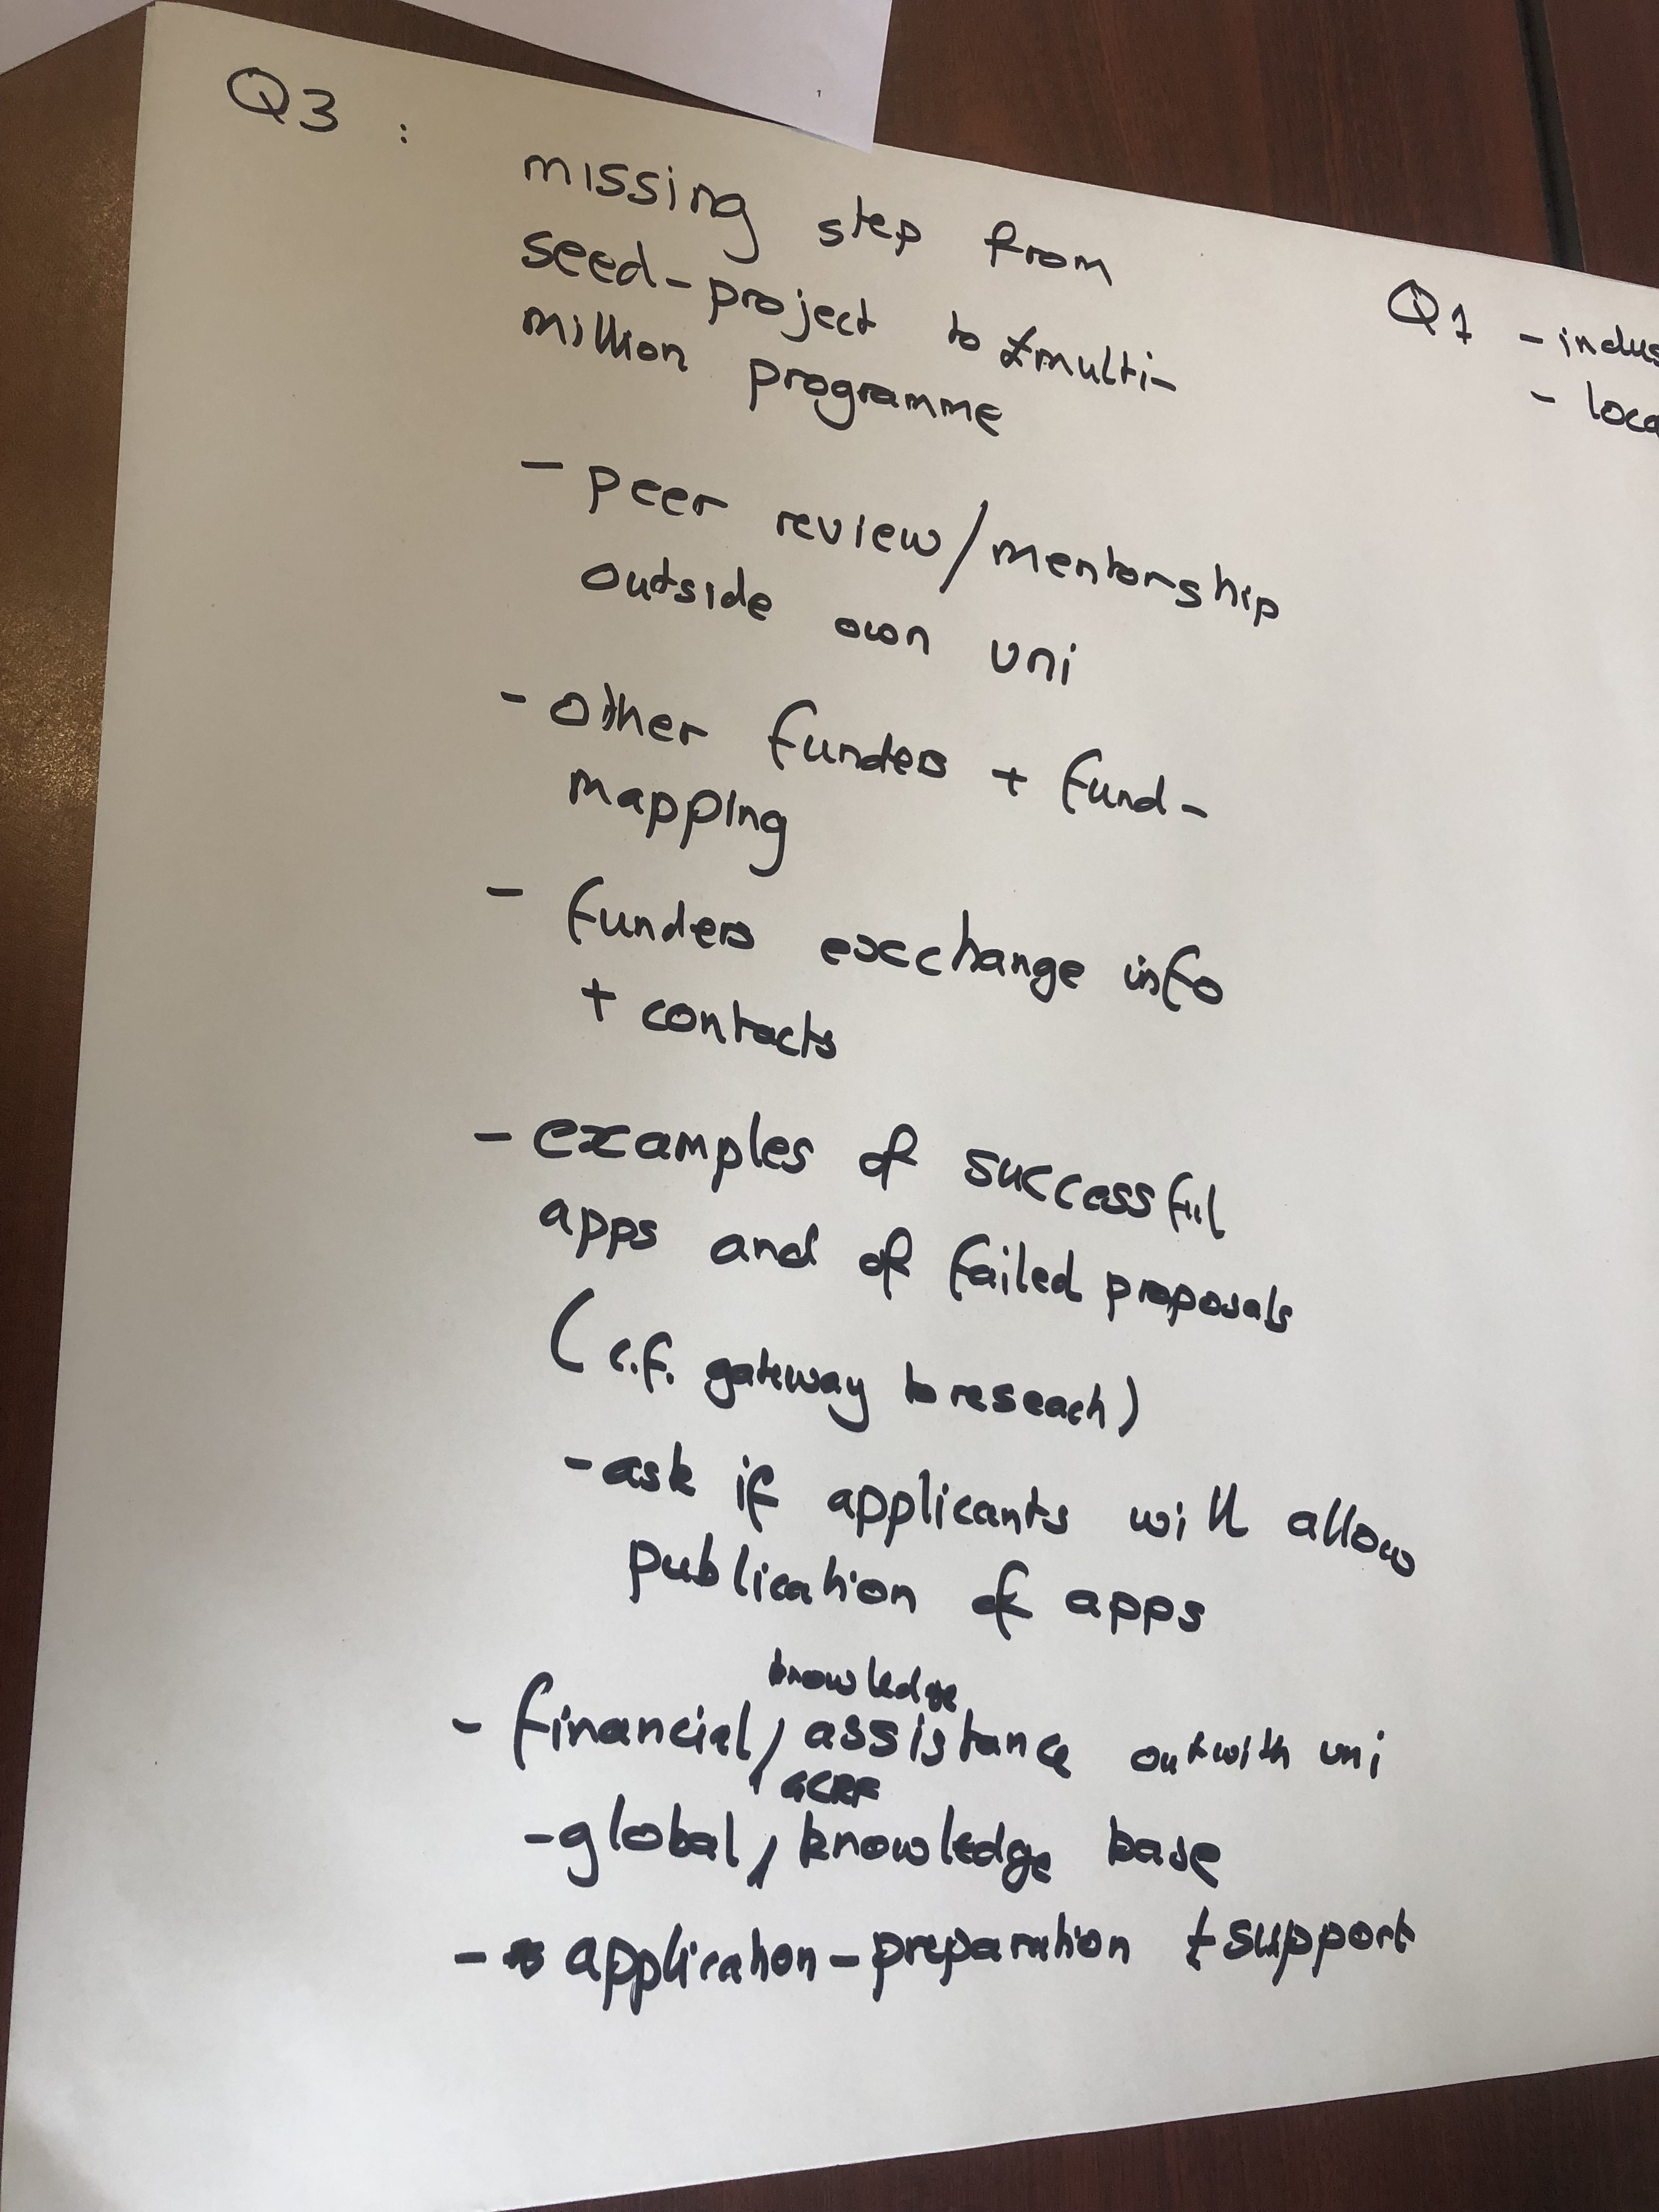 Q3 :
missing step from
seed-project to £multi-
million programme
- peer review/mentorship
outside own uni
- other funders + fund-
mapping
- funders excchange info
+ contacts
- examples of successful
apps and of failed proposals
(c.f. gateway to reseach)
- ask if applicants will allow
publication of apps
knowledge
- financial/assistance outwith uni
GCRF
- global/knowledge base
- application-preparation + support
Q1 - indus
- loca